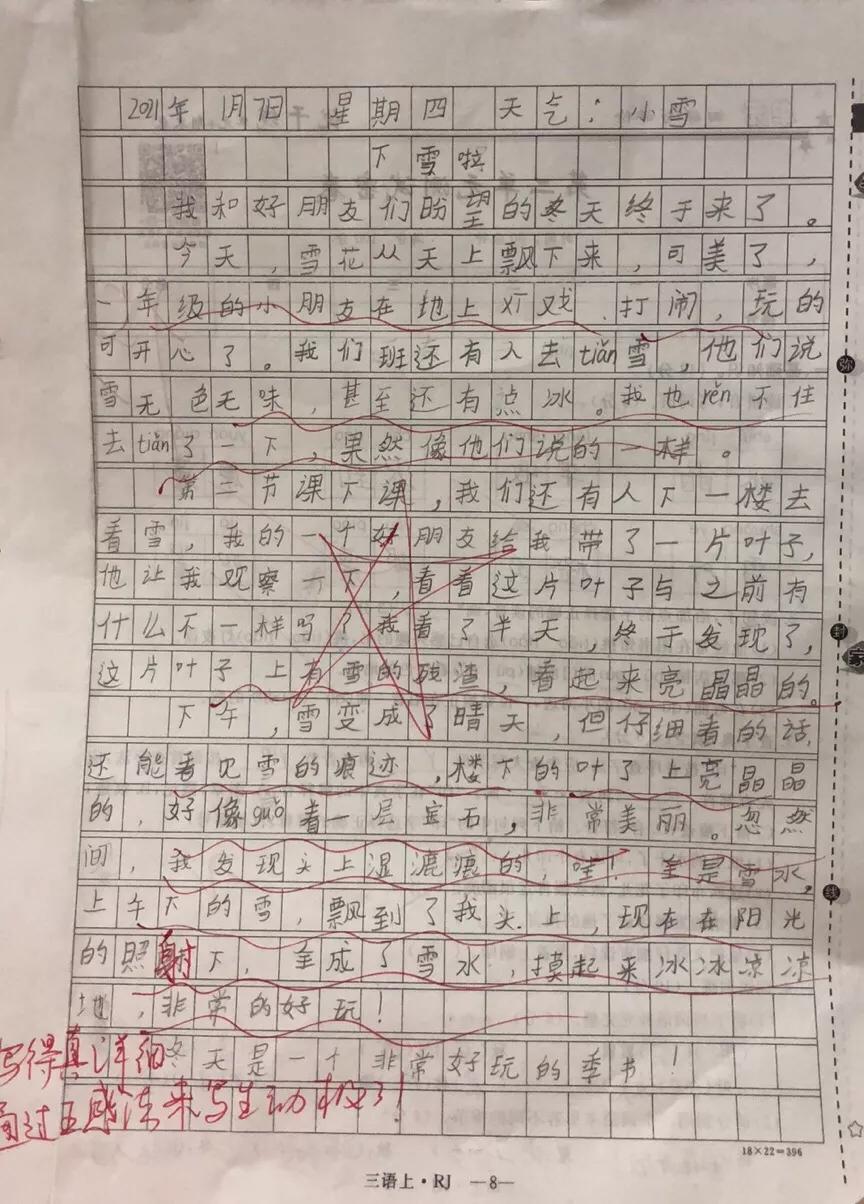 2021年 1月7日 星期四 天气：小雪
下雪啦
我和好朋友们盼望的冬天终于来了。
今天，雪花从天上飘下来，可美了，
一年级的小朋友在地上嬉戏.打闹，玩的
可开心了。我们班还有人去tiǎn雪，他们说
雪无色无味，甚至还有点冰。我也rěn不住
去tiǎn了一下，果然像他们说的一样。
第二节课下课，我们还有人下一楼去
看雪，我的一个好朋友给我带了一片叶子，
他让我观察一下，看看这片叶子与之前有
什么不一样吗？我看了半天，终于发现了，
这片叶子上有雪的残渣，看起来亮晶晶的。
下午，雪变成了晴天，但仔细看的话，
还能看见雪的痕迹，楼下的叶子上亮晶晶
的，好像guǒ着一层宝石，非常美丽。忽然
间，我发现头上湿漉漉的，哇！全是雪水，
上午下的雪，飘到了我头上，现在在阳光
的照射下，全成了雪水，摸起来冰冰凉凉
地，非常的好玩！
冬天是一个非常好玩的季节！
写得真详细
通过五感法来写生动极了！
18×22=396
三语上·RJ —8—
弥
封
线